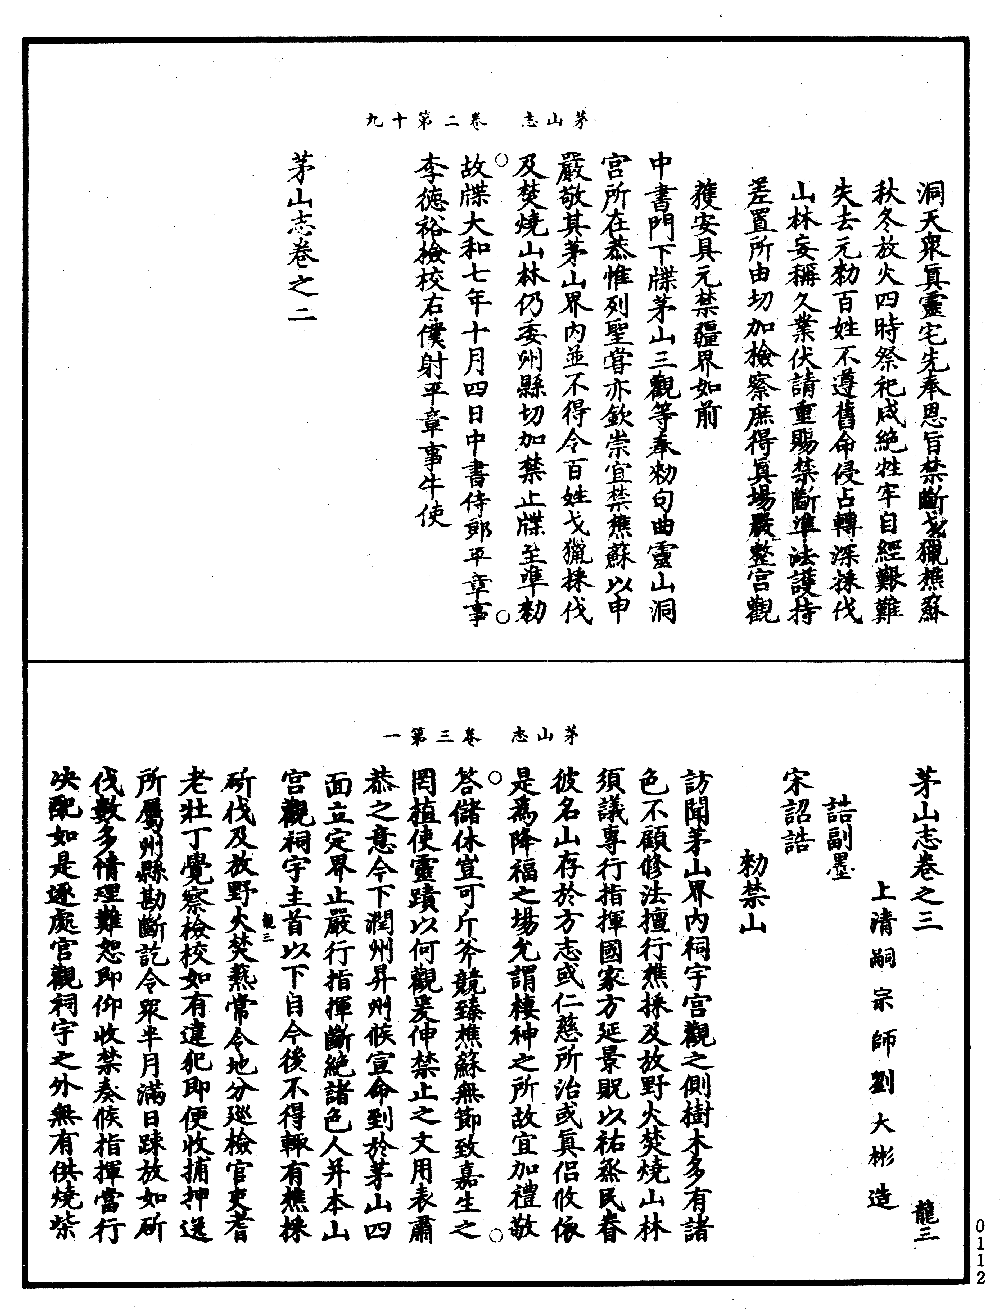 茅山志　卷二第十九
洞天衆眞靈宅先奉恩旨禁斷弋獵樵蘇
秋冬放火四時祭祀咸絶牲牢自經艱難
失去元勑百姓不遵舊命侵占轉深採伐
山林妄稱久業伏請重賜禁斷準法護持
差置所由切加檢察庶得眞場嚴整宫觀
獲安具元禁疆界如前
中書門下牒茅山三觀等奉勑句曲靈山洞
宫所在恭惟列聖嘗亦欽崇宜禁樵蘇以申
嚴敬其茅山界內並不得令百姓弋獵採伐
及焚燒山林仍委州縣切加禁止牒至準勑
故牒大和七年十月四日中書侍郎平章事
李德裕檢校右僕射平章事牛使
茅山志卷之二
茅山志　卷三第一
茅山志卷之三　龍三
上清嗣宗師劉大彬造
誥副墨
宋詔誥
勑禁山
訪聞茅山界內祠宇宫觀之側樹木多有諸
色不顧條法擅行樵採及放野火焚燒山林
須議專行指揮國家方延景貺以祐烝民眷
彼名山存於方志或仁慈所治或眞侣攸依
是爲降福之場允謂棲神之所故宜加禮敬
答儲休豈可斤斧競臻樵蘇無節致嘉生之
罔植使靈蹟以何觀爰伸禁止之文用表肅
恭之意今下潤州昇州候宣命到於茅山四
面立定界止嚴行指揮斷絶諸色人并本山
宫觀祠宇主首以下自今後不得輙有樵採
龍三
斫伐及放野火焚爇常令地分廵檢官吏耆
老壯丁覺察檢校如有違犯即便收捕押送
所屬州縣勘斷訖令衆半月滿日踈放如斫
伐數多情理難恕即仰收禁奏候指揮當行
決配如是逐處宫觀祠宇之外無有供燒柴
0112